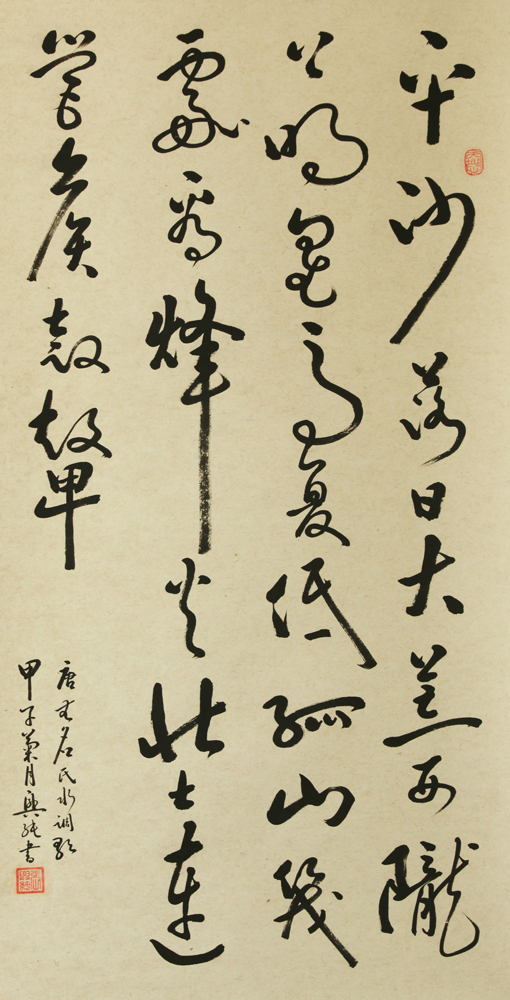 平沙落日大荒西隴
上明星高复低孤山幾
處看烽火壯士連
營候鼓鼙
唐无名氏水調歌
甲子菊月興書